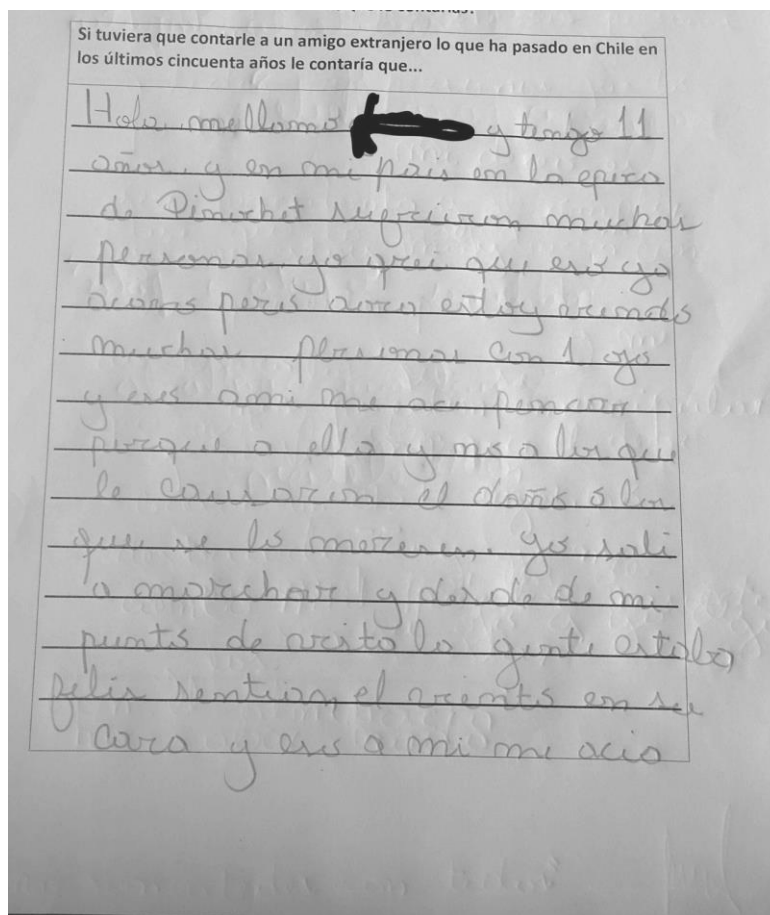 Si tuviera que contarle a un amigo extranjero lo que ha pasado en Chile en
los últimos cincuenta años le contaría que...
Hola mellamo y tengo 11
años, y en mi pais en la epoca
de Pinochet sufrieron muchas
personas, yo crei que eso ya
pero aora estoy
muchas personas con 1 ojo
y eso ami me ace pensar
porque a ello y no a los que
le causaron el daño o los
que se lo merecen. yo sali
a marchar y desde de mi
punto de la gente estaba
felis sentian el en su
cara y eso a mi me acia